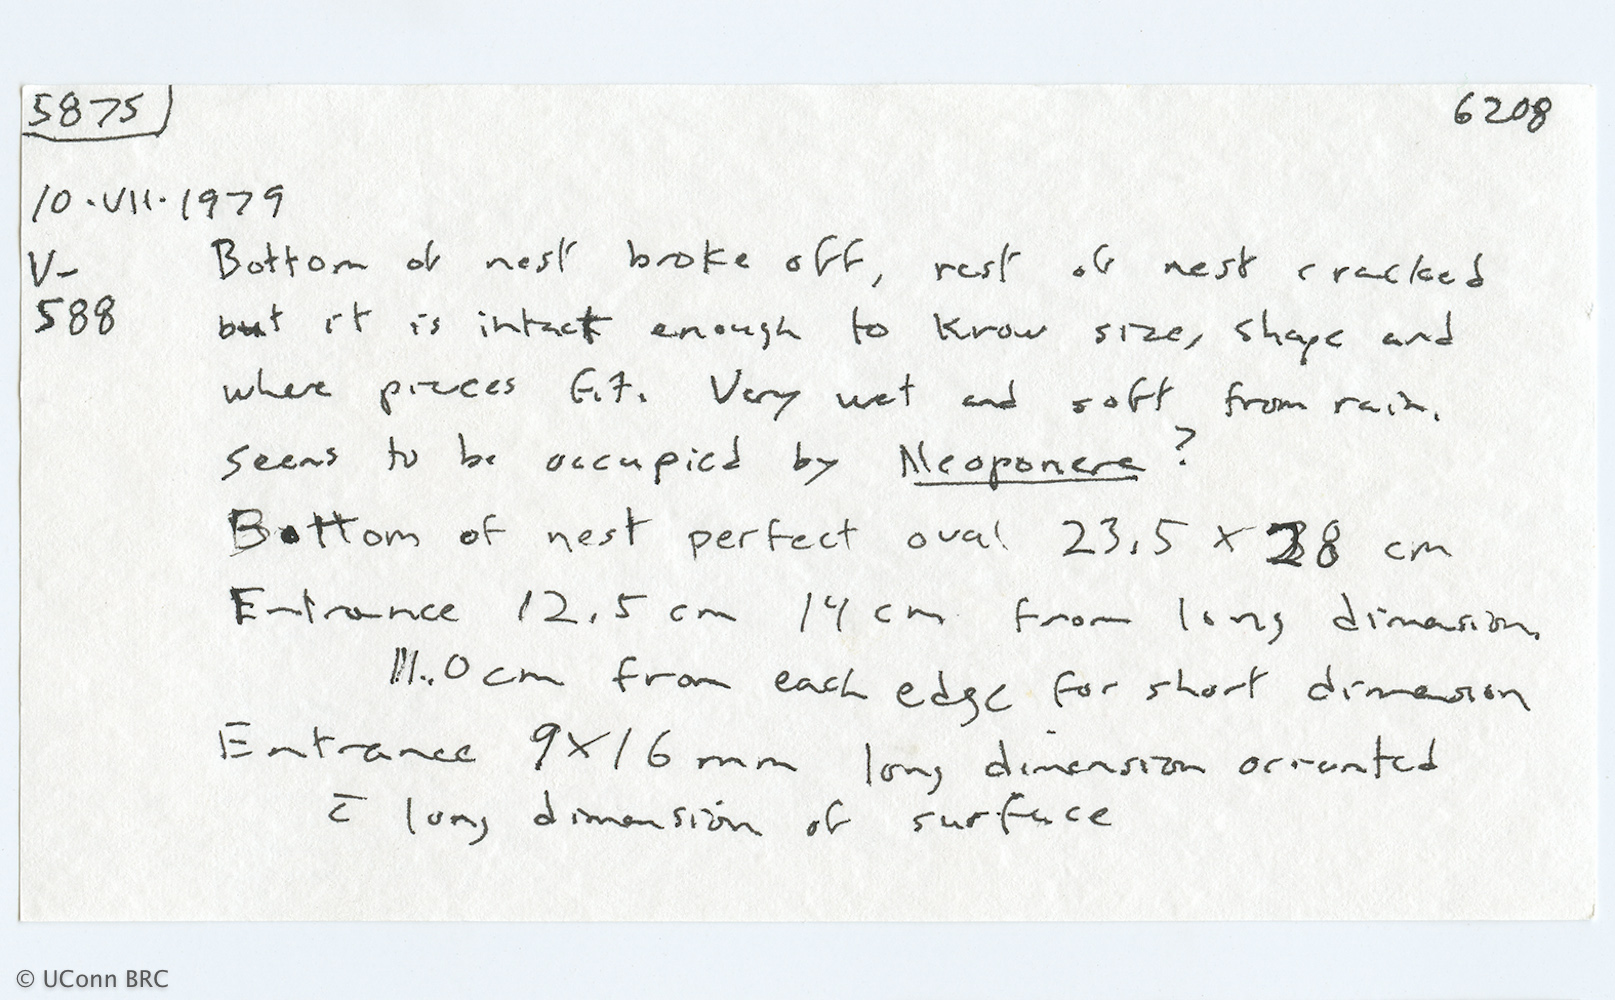 5875 6208
10.VII.1979
V- Bottom of nest broke off, rest of nest cracked
588 but it is intact enough to know size, shape and
where pieces fit. Very wet and soft from rain.
Seems to be occupied by Neoponera?
Bottom of nest perfect oval 23.5 x 28 cm
Entrance 12.5 cm 14 cm from long dimension.
11.0 cm from each edge for short dimension
Entrance 9x16 mm long dimension oriented
c̄ long dimension of surface
© UConn BRC